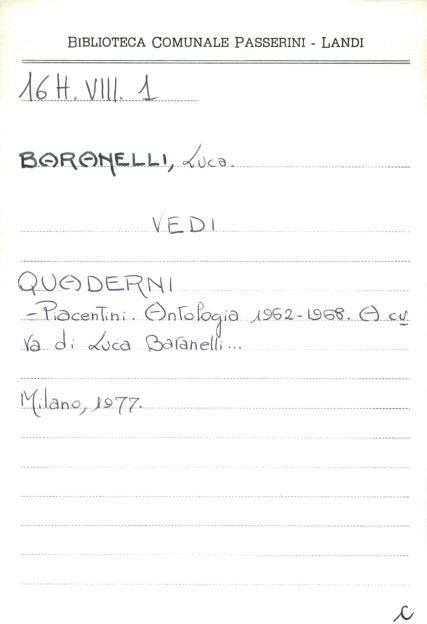 BIBLIOTECA COMUNALE PASSERINI - LANDI
16 H. VIII. 1
BARANELLI, Luca.
VEDI
QUADERNI
- Piacentini. Antologia 1962-1968. A cu
ra di Luca Baranelli...
Milano, 1977.
C